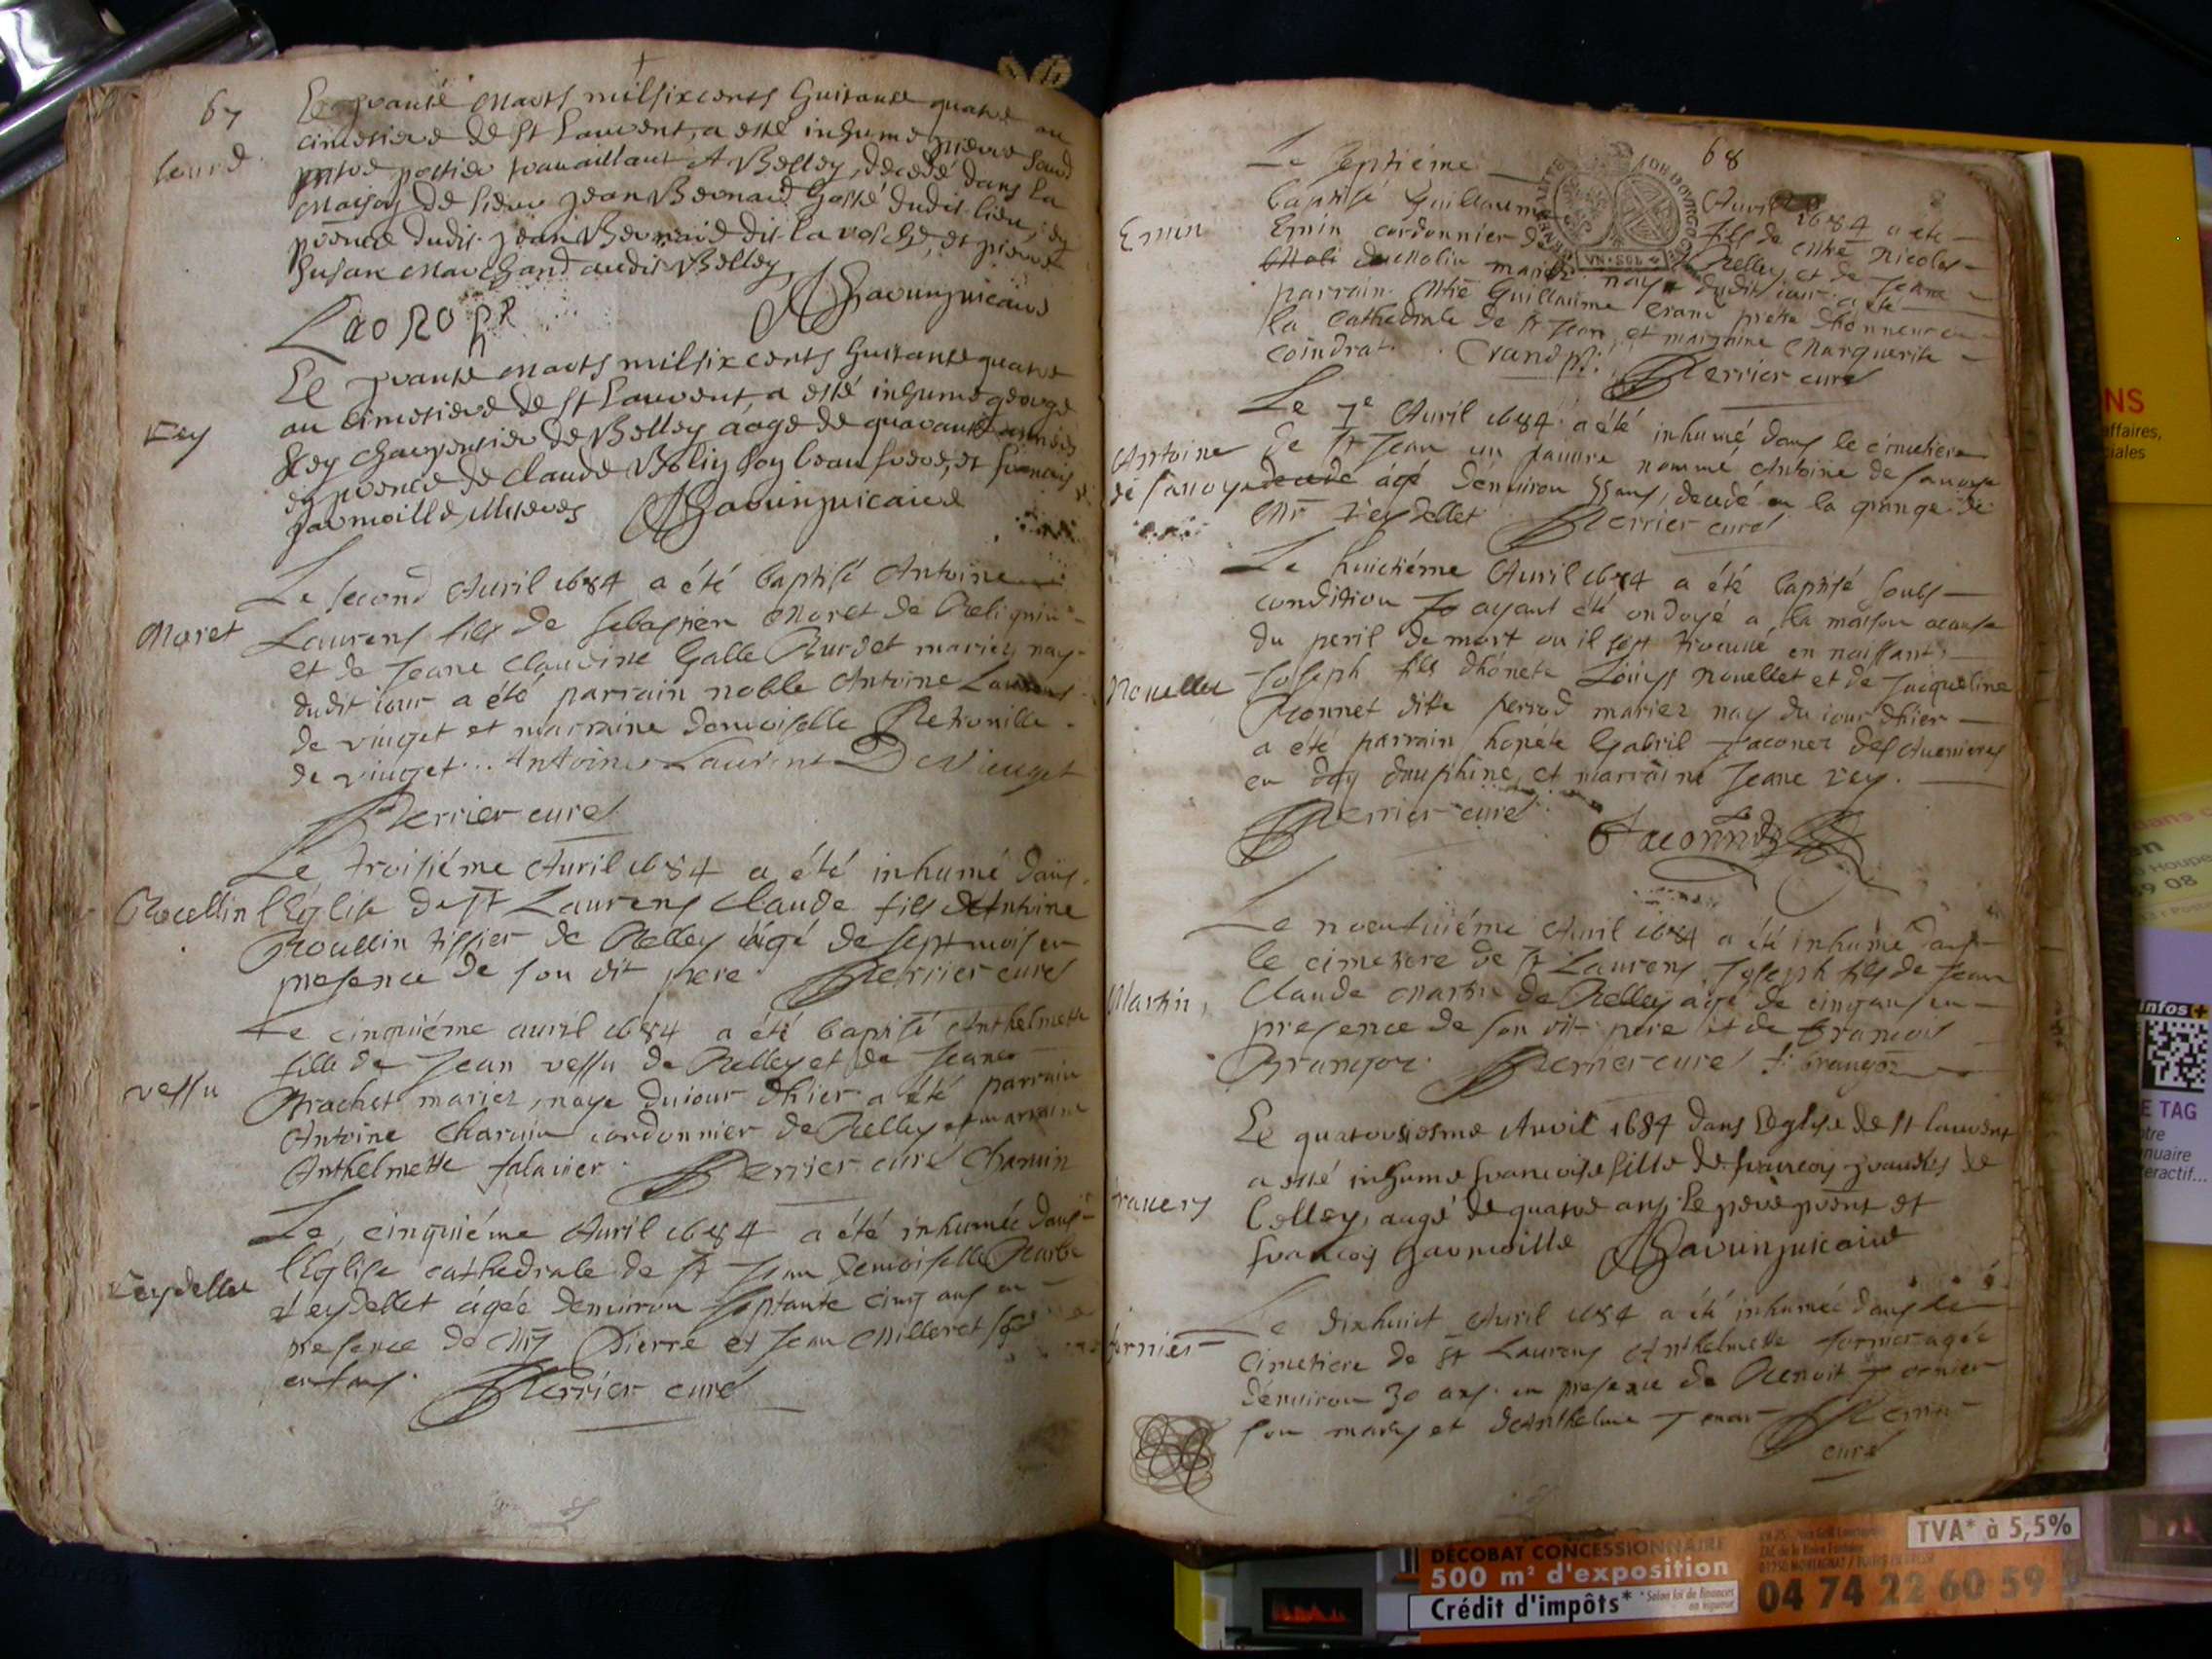 67
Le trante marts mil six cents huitante quatre au
cimetiere de St Laurent, a esté inhumé pierre
potier travaillant a Belley, decedé dans la
maison de sieur Jean Bernard hoste dudit lieu, en
pñence dudit Jean Bernard dit la roche, et pierre
Susan marchand audit Belley
Le trante marts mil six cents huitante quatre
Rey
au cimetiere de St Laurent, a esté inhumé george
Rey charpentier de Belley aage de quarante années
en pñence de claude Bolin son beau frere, et francois
Le second Avril 1684 a été baptisé Antoine
Moret
Laurens fils de Sebastien Moret de
et de Jeane Claudine Galle Burdet mariez nay
dudit iour a été parrain noble Antoine Laurens
de vinget et marraine demoiselle Petronille
de vinget. Antoine Laurent De Vinget
Perrier curé
Le troisiéme Avril 1684 a été inhumé dans
l'Eglise de St Laurens Claude fils d'Antoine
tissier de Belley âgé de sept mois en
presence de son dit pere Perrier curé
Le cinquiéme avril 1684 a été baptisé Anthelmette
fille de Jean vessu de Belley et de Jeane
vessu
Brachet mariez, naye du iour d'hier a été parrain
Antoine Charvin cordonnier de Belley et marraine
Anthelmette falavier. Perrier curé Charvin
Le cinquiéme Avril 1684 a été inhumée dans
l'Eglise cathedrale de St Jean demoiselle Barbe
Reydellet
Reydellet âgée d'environ septante cinq ans en
presence de Mrs Pierre et Jean Milleret ses
enfans. Perrier curé
68
Le septiéme Avril 1684 a été
baptisé Guillaume fils de Mtre Nicolas
Emin
Emin cordonnier de Belley et de Jeane
du Molin mariez nay dudit iour a été
parrain Mtre Guillaume Crand prêtre d'honneur en
la Cathedrale de St Jean, et marraine Marguerite
Coindrat. Crand p. Perrier curé
Le 7e Avril 1684 a été inhumé dans le cimetiere
Antoine
de St Jean un pauvre nommé Antoine de Savoye
de Savoye
decedé âgé d'environ 55 ans, decedé en la grange de
Mr Reydellet Perrier curé
Le huictiéme Avril 1684 a été baptisé soubs
condition ayant été ondoyé a la maison acause
du peril de mort ou il s'est trouvé en naissant
Nouellet
Joseph fils d'honete Louys Nouellet et de Jacqueline
Bonnet ditte perrod mariez nay du iour d'hier
a été parrain honete Gabril Jaconez des Avenieres
en dauphiné, et marraine Jeane Rey.
Perrier curé
Le neufuiéme Avril 1684 a été inhumé dans
le cimetiere de St Laurens Joseph fils de Jean
Martin
Claude Martin de Belley âgé de cinq ans en
presence de son dit pere et de Francois
Brangoz. Perrier curé f. brangoz
Le quatorsiesme Avril 1684 dans Leglise de St Laurent
a esté inhumé francoise fille de francois de
travers
belley, aagé de quatre ans, le pere pñent et
Le dixhuict Avril 1684 a été inhumée dans le
fornier
cimetiere de St Laurens Anthelmette fornier agée
d'environ 30 ans. en presence de Benoit fornier
son mary et d'Anthelme Perrier
curé
NS
affaires,
Infos+
E TAG
TVA* à 5,5%
DECOBAT CONCESSIONNAIRE
500 m² d'exposition
Crédit d'impôts*
04 74 22 60 59